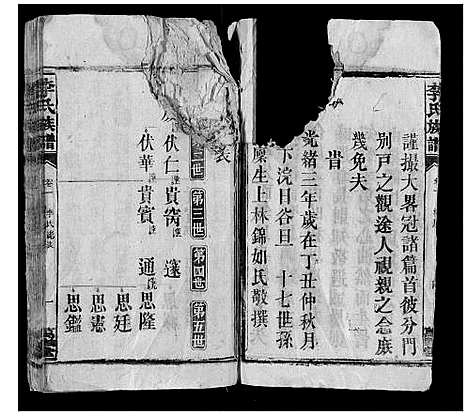 李氏族譜
謹撮大畧冠諸篇首彼分門
別戸之觀途人視親之念庶
幾免夫
旹
光緒三年歲在丁丑仲秋月
下浣日谷旦　十七世孫
廩生上林錦如氏敬撰
表
三世　第三世　第四世　第五世
伏仁　貴㝫　邃
思隆
伏華　貴賓　通
思廷
思憲
思鑑
李氏族譜
卷一